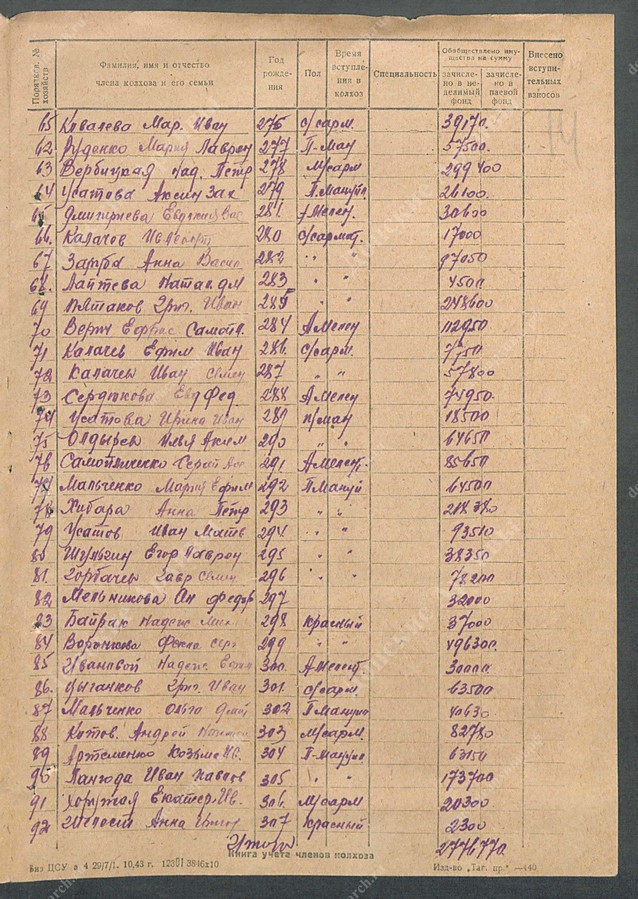 Порядков. № хозяйств
Фамилия, имя и отчество члена колхоза и его семьи
Год рождения
Пол
Время вступления в колхоз
Специальность
Обобществлено имущества на сумму
зачислено в неделимый фонд
зачислено в паевой фонд
Внесено вступительных взносов
65 Ковалева Мар. Иван 276 с/сарм. 39170
62 Руденко Мария Лаврен 277 П-Ман 57500
63 Вербицкая Над. Петр 278 М/сарм 299400
64 Усатова Аксин Зах 279 П. Мануил 26100
65 Евдокия Вас 281 А Мелен. 30600
66. Калачов 280 с/сармат. 17000
67 Заруба Анна Васил 282 " " 97050
68. Лаптева Натал дм 283 " " 4500
69 Пятаков Григ. Иван 285 " " 248600
70 Самойл. 284 А Мелен 112950
71 Калачев Ефим Иван 286. с/сарм.
72 Калачев Иван Семен 287 " " 57800
73 Сердюкова Евд Фед 288 А Мелен 74950
74 Усатова Ирина Иван 289 п/ман 18500
75 Илья Аким 290 " " 64650
76 Самойличенко Сергей 291 А Мелент. 85650
77 Мальченко Мария Ефим 292 П Мануй 64500
78 Хибара Анна Петр 293 " "
79 Усатов Иван Матв 294 " " 93510
80 Шульгин Егор Лаврен 295 " " 38350
81. Горбачев Гавр Семен 296 " " 78200
82 Мельникова Ан Федор 297 32000
83 Байрак Надеж Мих 298 Красный 37000
84 Воронкова Фекла Серг 299 " " 496300.
85 Надеж. Ефим 300. А Мелент. 30000
86. Цыганков Григ. Иван 301. с/сарм 63500
87 Мальченко Ольга Дмит 302 П Мануил 40630
88 Котов. Андрей 303 м/сарм 82780
89 Артеменко Козьма Ив. 304 П-Мануил 63150
90 Лангода Иван Павлов 305 " " 173700
91 Екатер. Ив. 306. М/сарм 20300
92 Анна 307 Красный 2300
Итого 2776770.
Книга учета членов колхоза
Виз ЦСУ в 4 29/7/1. 10,43 г. 3846х10
Изд-во „Таг. пр." —440